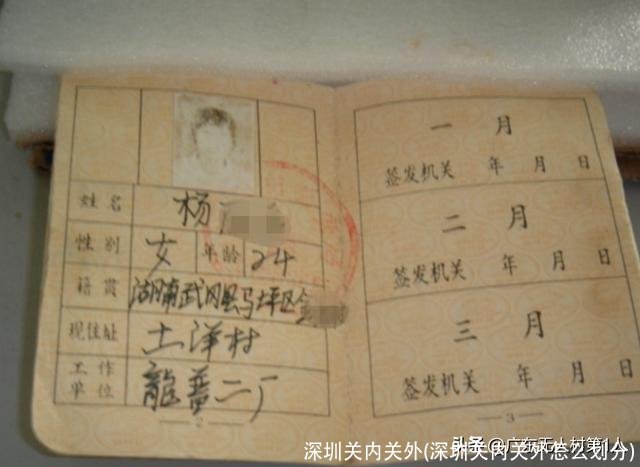 姓名 杨
性别 女 年龄 24
籍贯 湖南武冈县马坪区
现住址 土洋村
工作单位 龍普二厂
2
一 月
签发机关 年 月 日
二 月
签发机关 年 月 日
三 月
签发机关 年 月 日
3
头条@广东无人村第1人
深圳关内关外(深圳关内关外怎么划分)